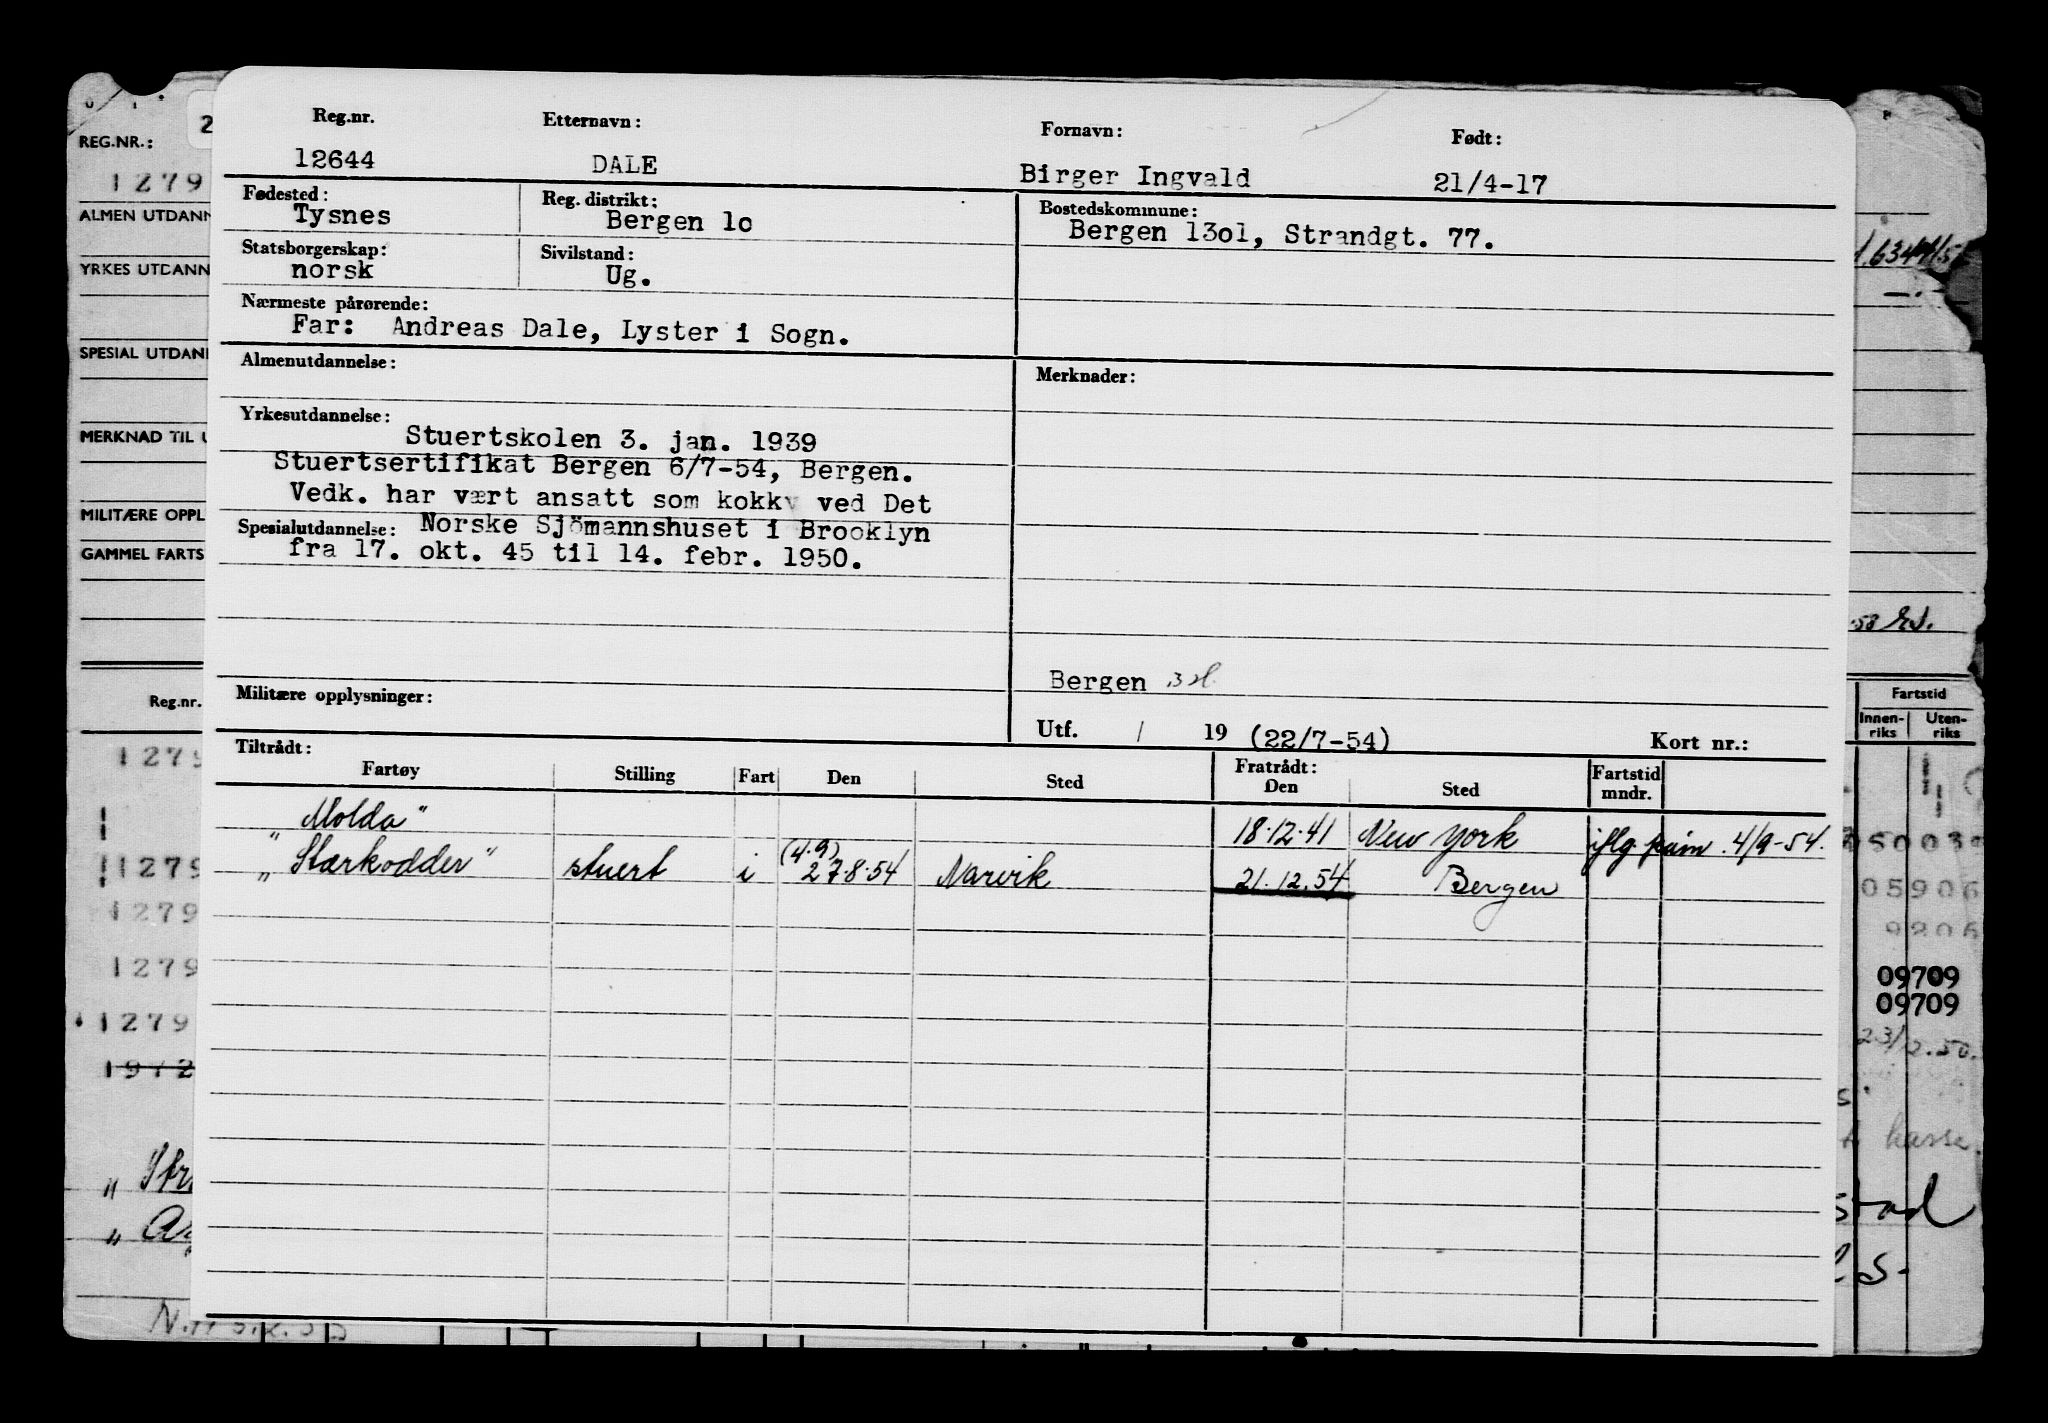 Reg.nr. Etternavn: Fornavn: Født:
12644 DALE Birger Ingvald 21/4-17
Fødested: Reg. distrikt: Bostedskommune:
Tysnes Bergen lo Bergen 13ol, Strandgt. 77.
Statsborgerskap: Sivilstand:
norsk Ug.
Nærmeste pårørende:
Far: Andreas Dale, Lyster i Sogn.
Almenutdannelse: Merknader:
Yrkesutdannelse:
Stuertskolen 3. jan. 1939
Stuertsertifikat Bergen 6/7-54, Bergen.
Vedk. har vært ansatt som kokk ved Det
Spesialutdannelse: Norske Sjömannshuset i Brooklyn
fra 17. okt. 45 til 14. febr. 1950.
Bergen
Militære opplysninger:
Utf. / 19 (22/7-54) Kort nr.:
Tiltrådt: Fratrådt:
Fartøy Stilling Fart Den Sted Den Sted Fartstid mndr.
"Molda" 18.12.41 New York iflg 4/9-54.
"Stærkodder" stuert i (4.9) 27.8.54 Narvik 21.12.54 Bergen
REG.NR.: 2
1279
ALMEN UTDANN
YRKES UTDANN
SPESIAL UTDAN
MERKNAD TIL
MILITÆRE OPPL
GAMMEL FARTS
Reg.nr.
1279
1279
1279
1279
1279
Fartstid
Innen-riks Uten-riks
05906
9206
09709
09709
23/12.50.